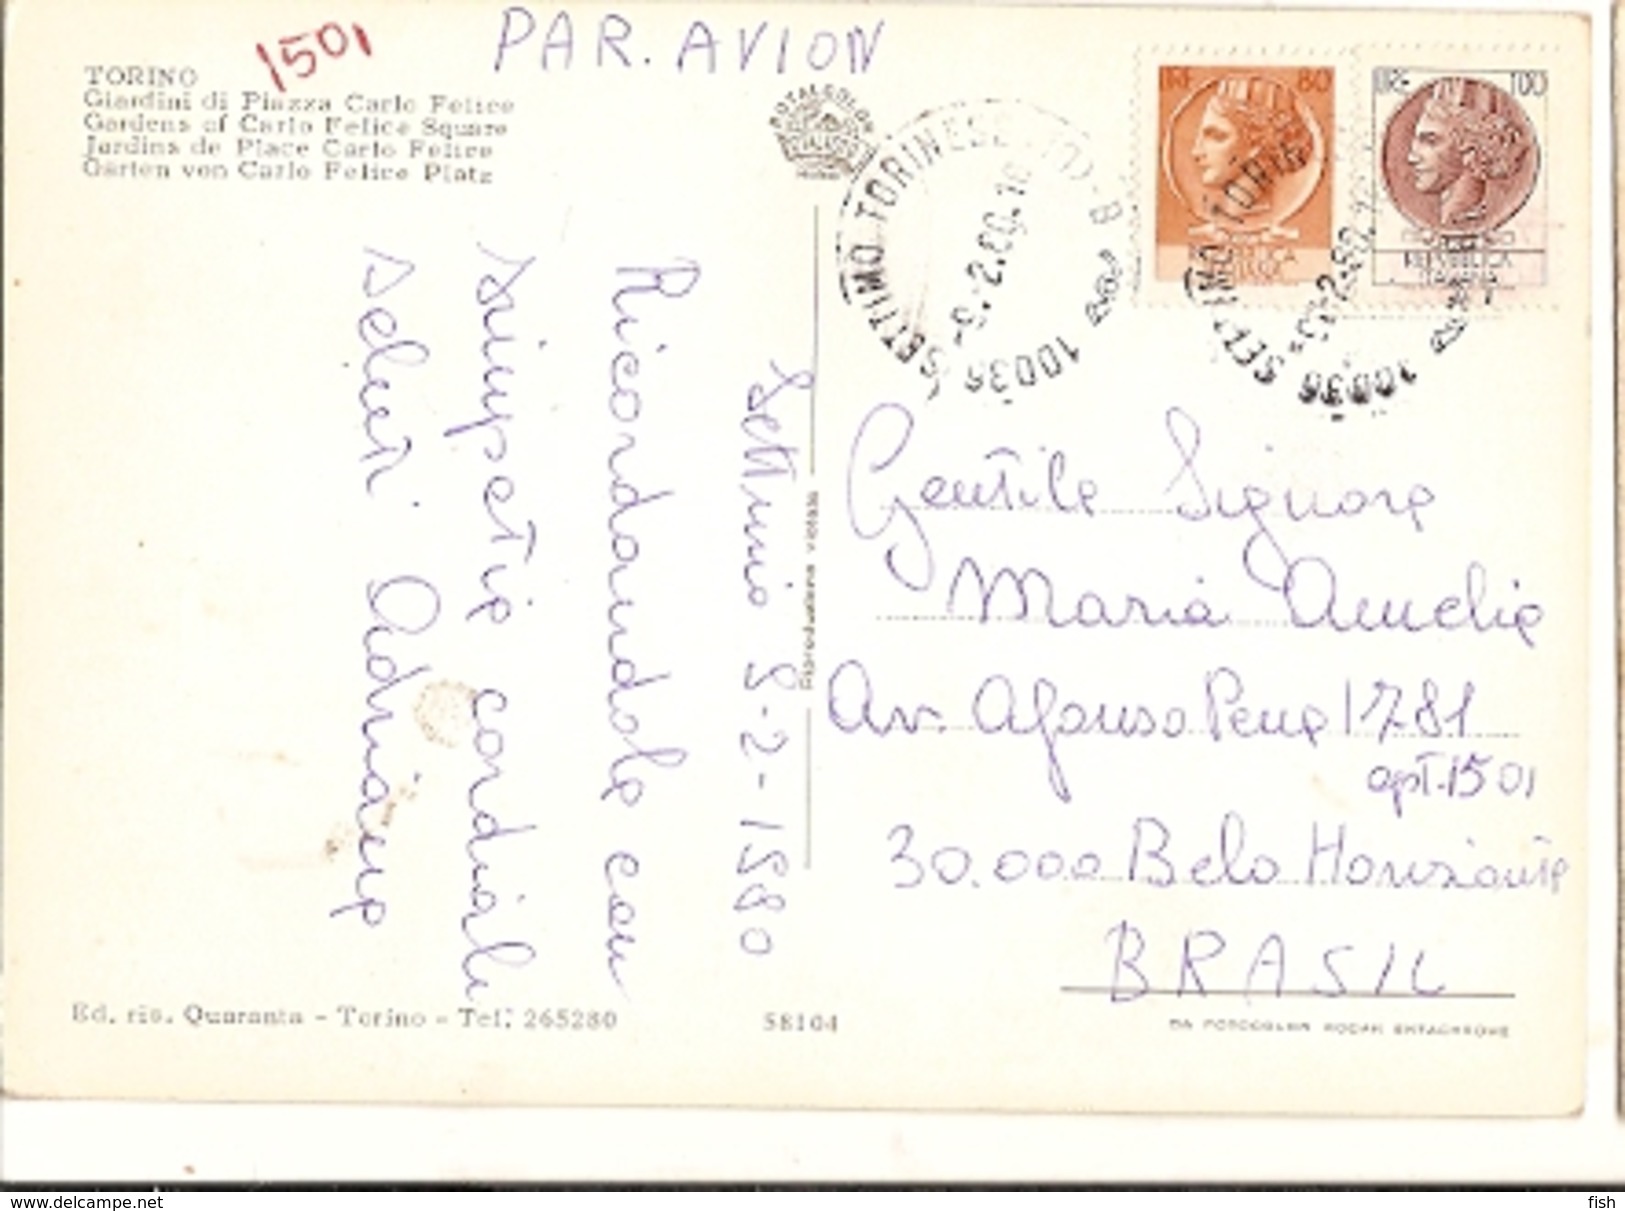 PAR. AVION
1501
TORINO
Giardini di Piazza Carlo Felice
Gardens of Carlo Felice Square
Jardins de Place Carlo Felice
Garten von Carlo Felice Platz
ROTALCOLOR
LIRE 80
LIRE 100
REPUBBLICA
REPUBBLICA
ITALIANA
10036 SETTIMO TORINESE (TO) - B
10036 SETTIMO TORIN
Settimo 9-2-1980
Ricordandola con
simpatia cordiali
saluti Adriana
Riproduzione vietata
Gentile Signora
Maria Amelia
Av. Afonso Pena 1781
apt. 1501
30.000 Belo Horizonte
BRASIL
Ed. ris. Quaranta - Torino - Tel. 265280
58104
DA FOTOCOLOR KODAK EKTACHROME
delcampe.net
fish